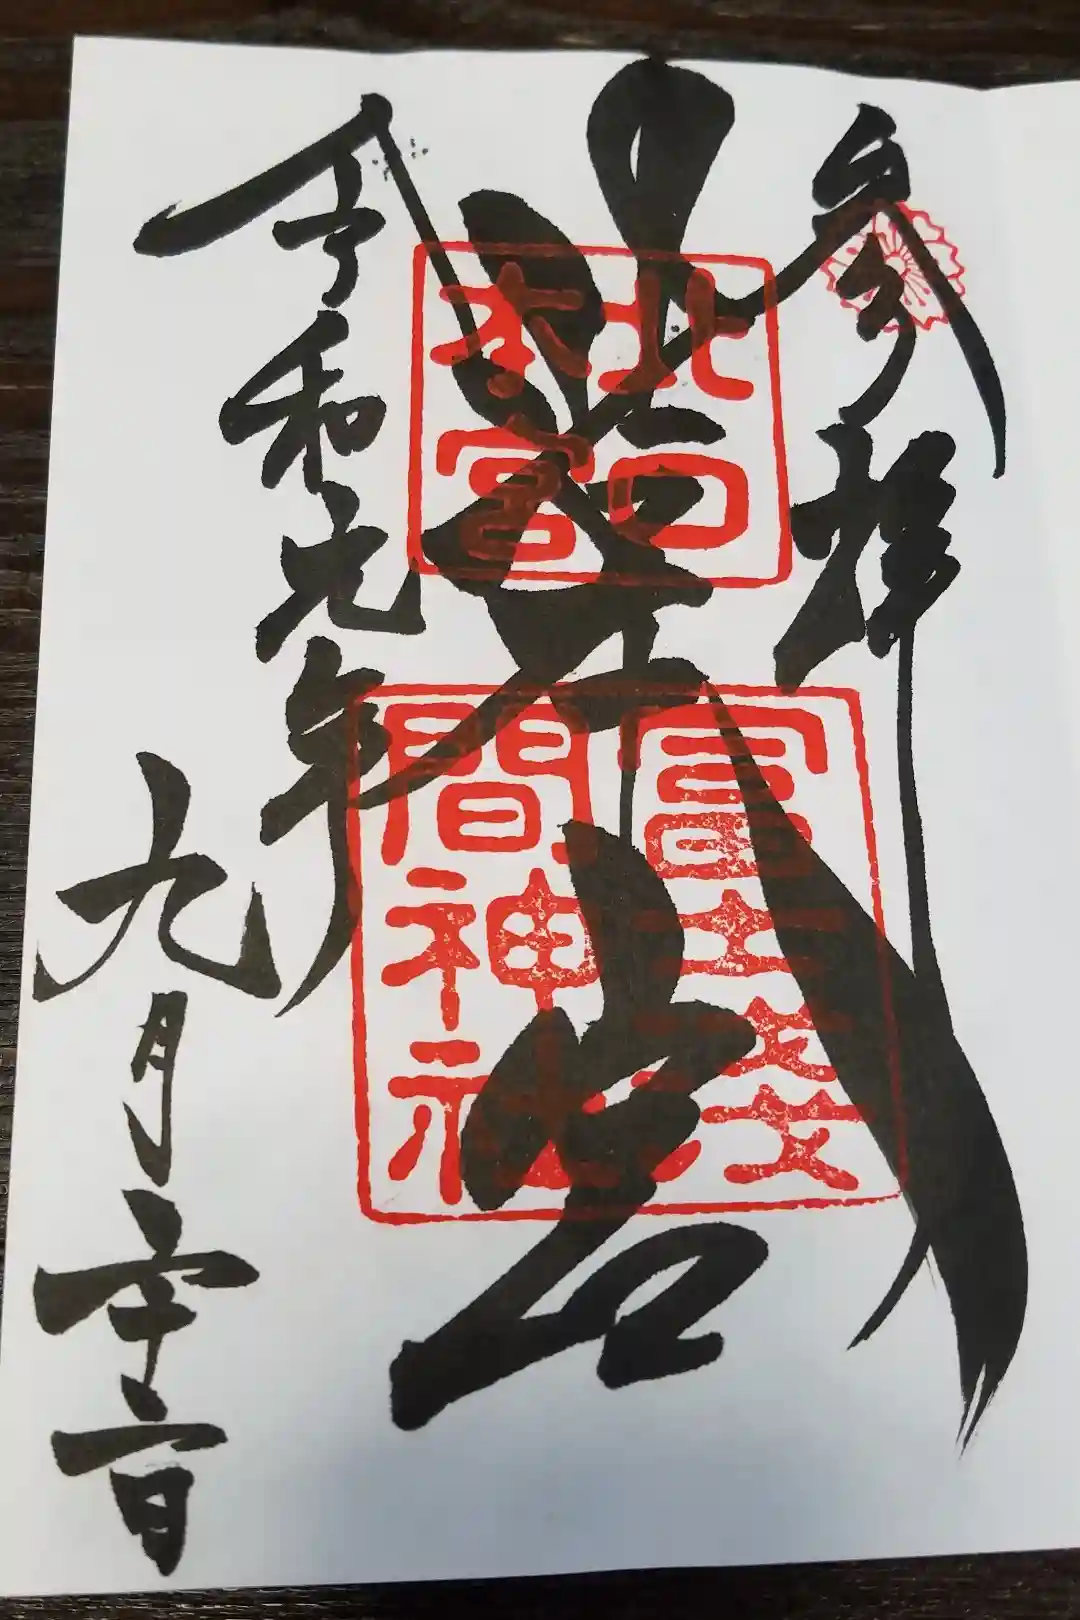 参拝
北口
本宮
冨士淺
間神社
令和元年
九月二十二日